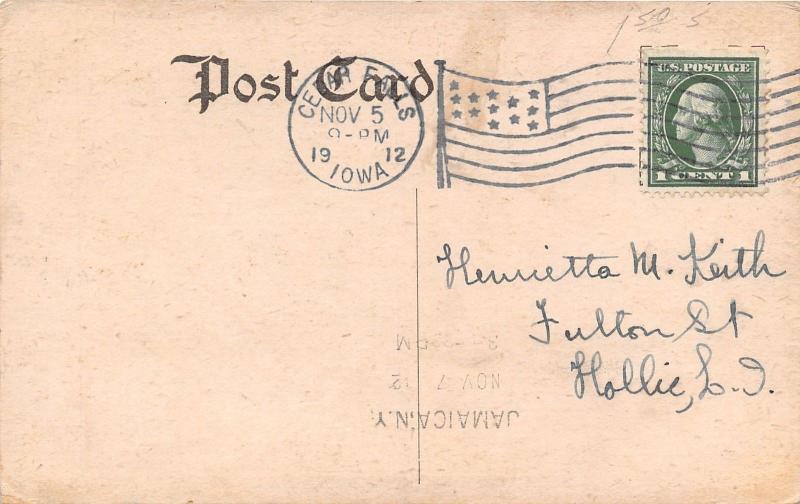 Post Card
CEDAR FALLS
NOV 5
9-PM
19 12
IOWA
U.S. POSTAGE
1 CENT 1
Henrietta M. Keith
Fulton St
Hollie, L.I.
JAMAICA, N.Y.
NOV 7 12
PM